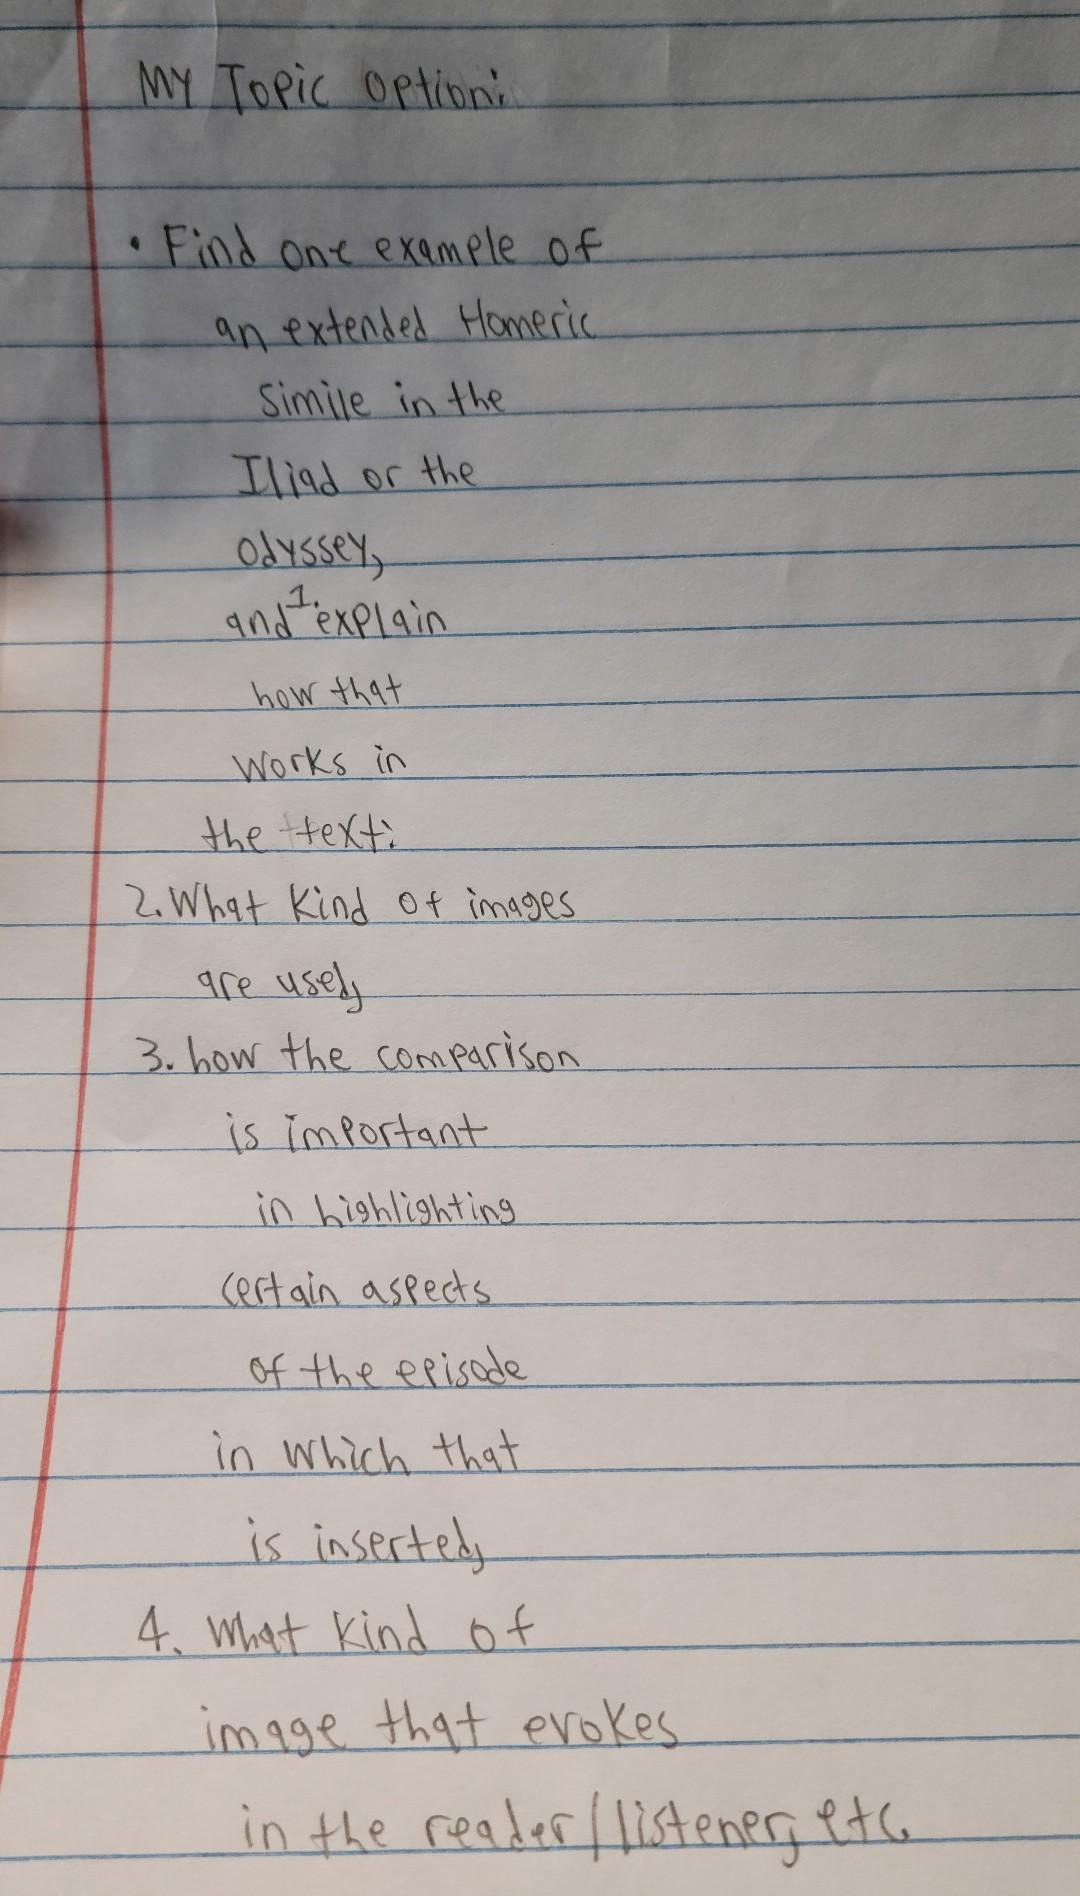 My Topic option:
• Find one example of
an extended Homeric
Simile in the
Iliad or the
odyssey,
and 1. explain
how that
works in
the text:
2. What kind of images
are used,
3. how the comparison
is important
in highlighting
certain aspects
of the episode
in which that
is inserted,
4. What kind of
image that evokes
in the reader/listener, etc.